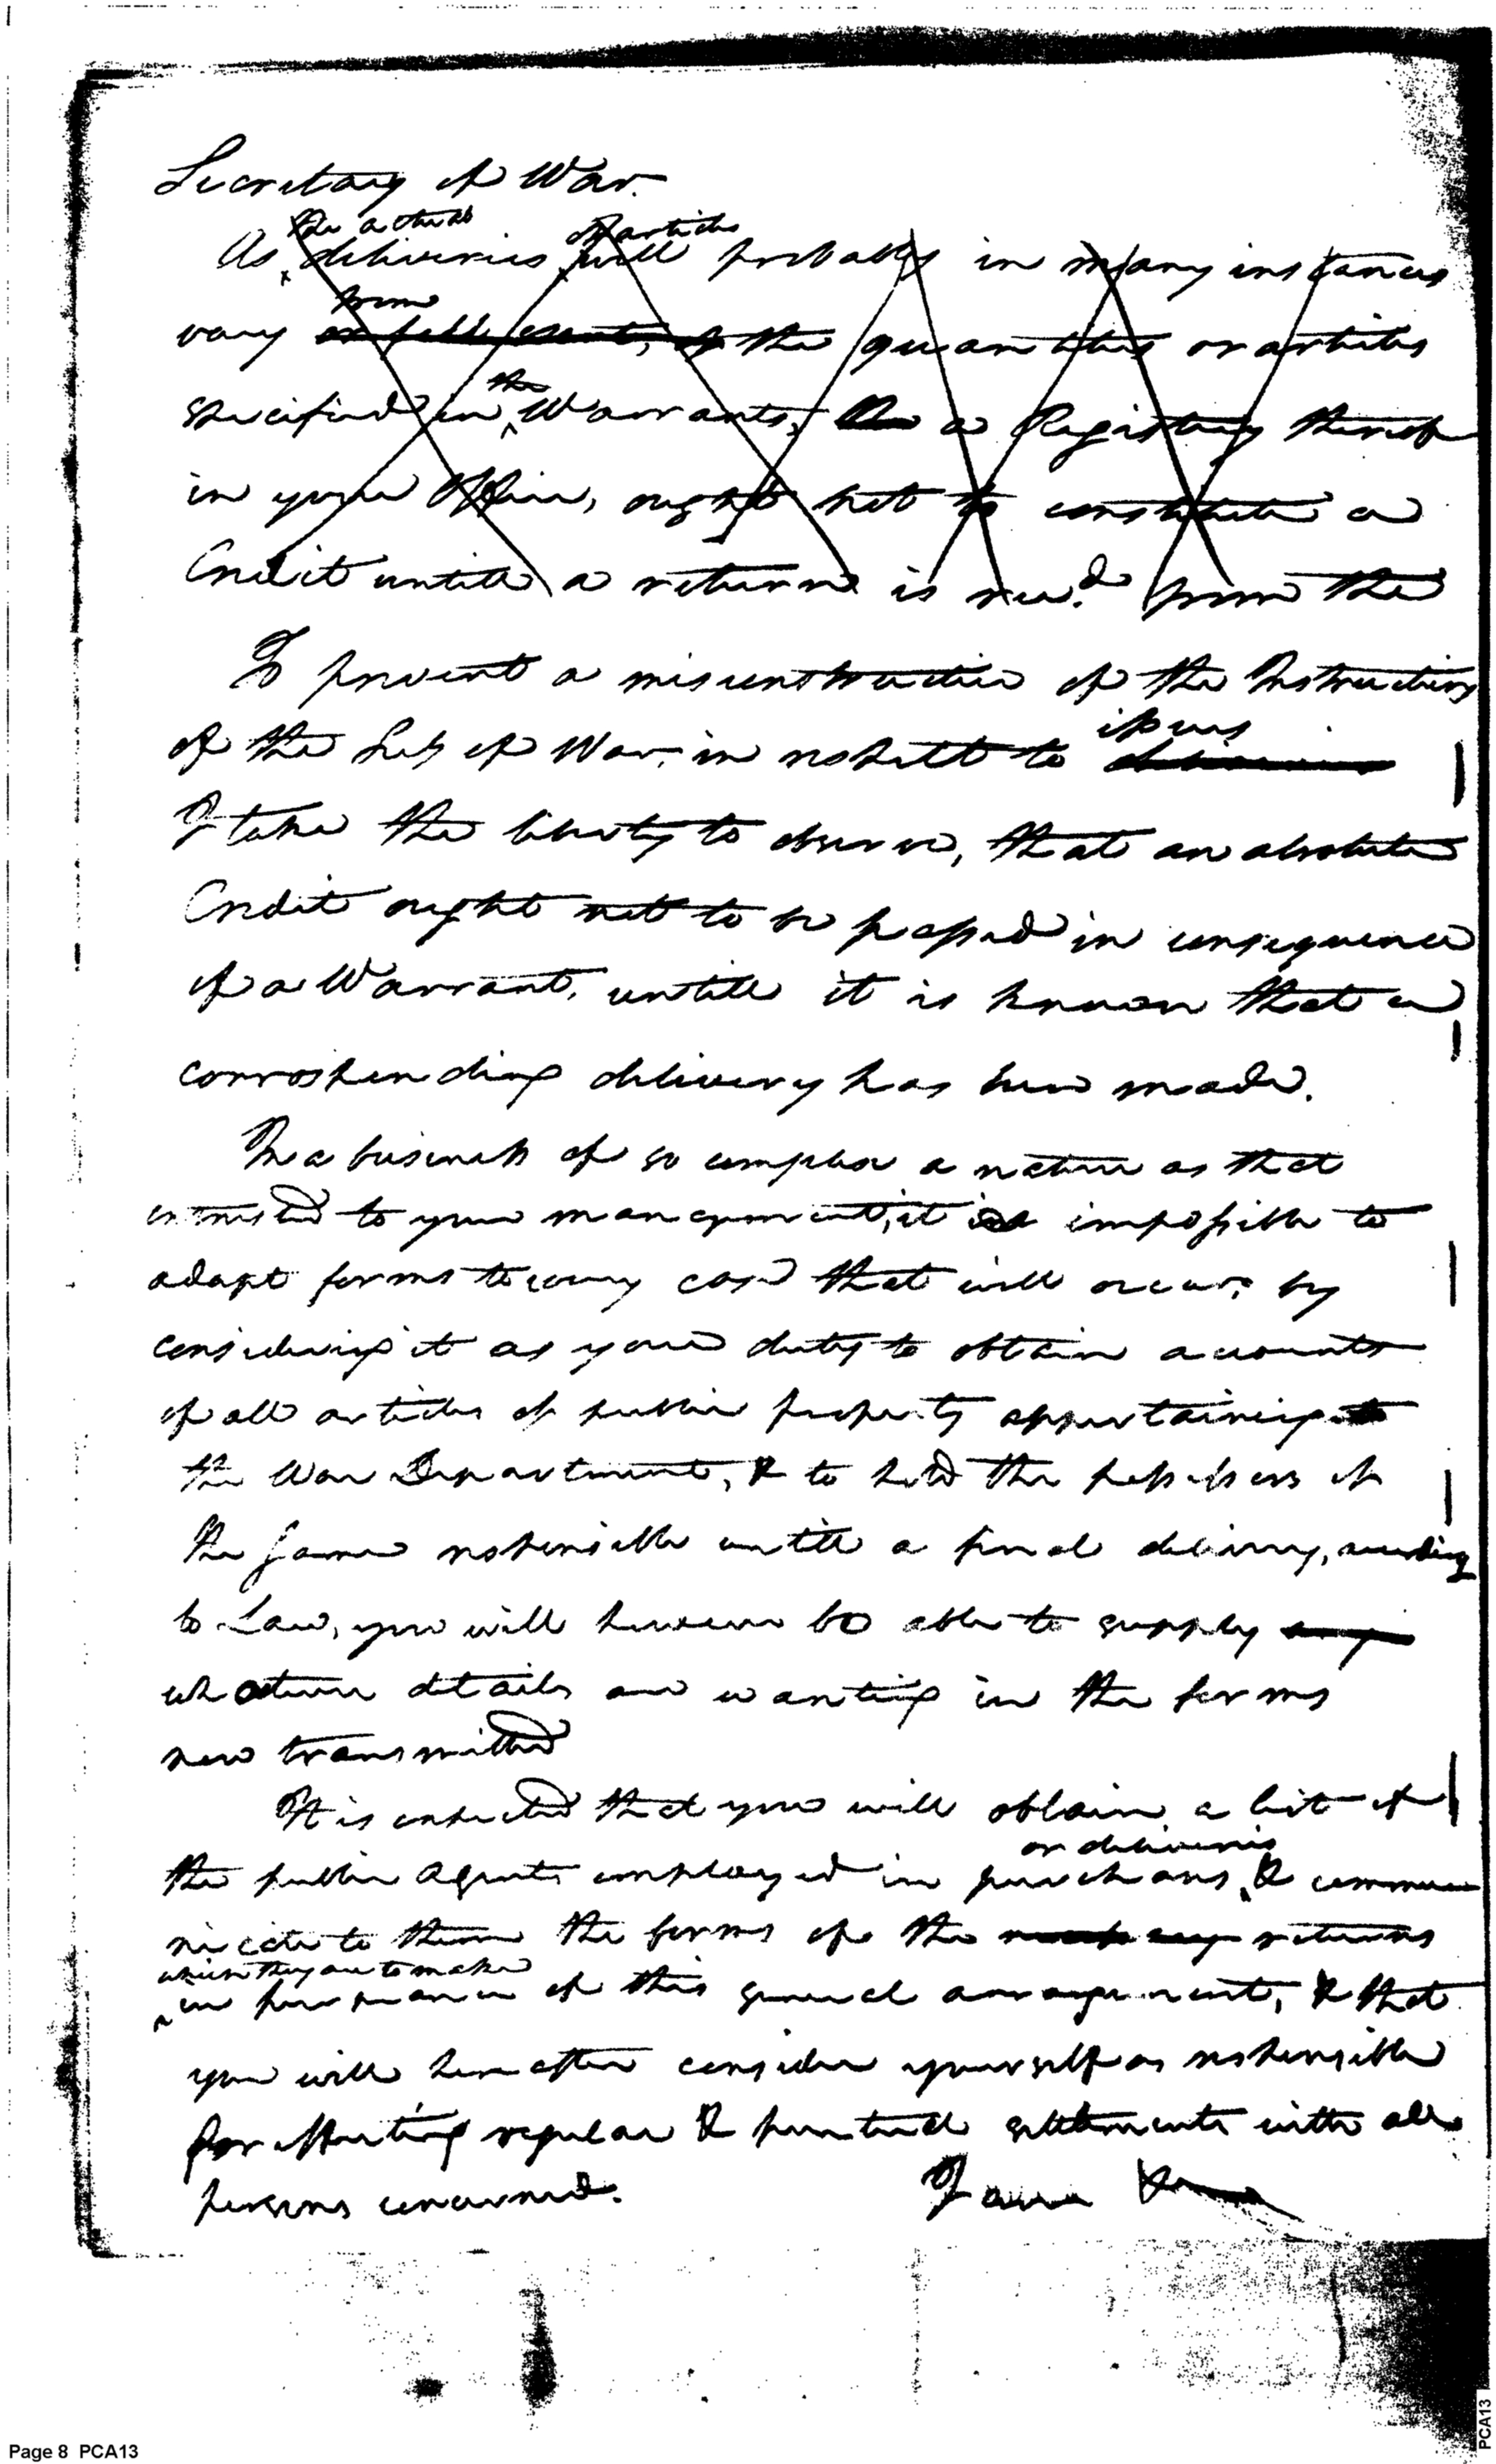 Secretary of War.
the actual of articles
As deliveries will probably in many instances
from
vary or fall short, of the quantities or articles
the
specified in Warrants, the a Registry thereof
in your Office, ought not to constitute a
Credit untill a return is recd. from the
To prevent a misconstruction of the Instructions
of the Secy of War, in respect to issues
I take the liberty to observe, that an absolute
Credit ought not to be passed in consequence
of a Warrant, untill it is known that a
corresponding delivery has been made.
In a business of so complex a nature as that
entrusted to your management, it is impossible to
adapt forms to every case that will occur, by
considering it as your duty to obtain accounts
of all articles of public property appertaining to
the War Department, & to hold the possessors of
the same responsible untill a final delivery, according
to Law, you will however be able to supply any
whatever details are wanting in the forms
now transmitted
It is expected that you will obtain a list of
or deliveries
the public Agents employed in purchases, & commu
nicate to them the forms of the returns
which they are to make
in pursuance of this general arrangement, & that
you will hereafter consider yourself as responsible
for effecting regular & punctual settlements with all
persons concerned. I am
Page 8 PCA13
PCA13